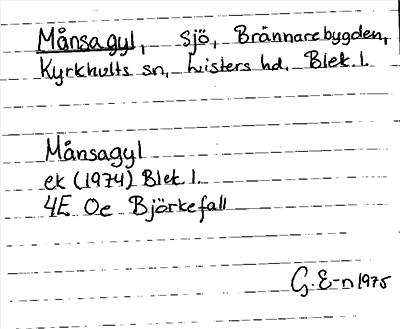 Månsagyl, sjö, Brännarebygden,
Kyrkhults sn, Listers hd. Blek. l.
Månsagyl
ek (1974) Blek. l.
4E Oe Björkefall
G. E-n 1975